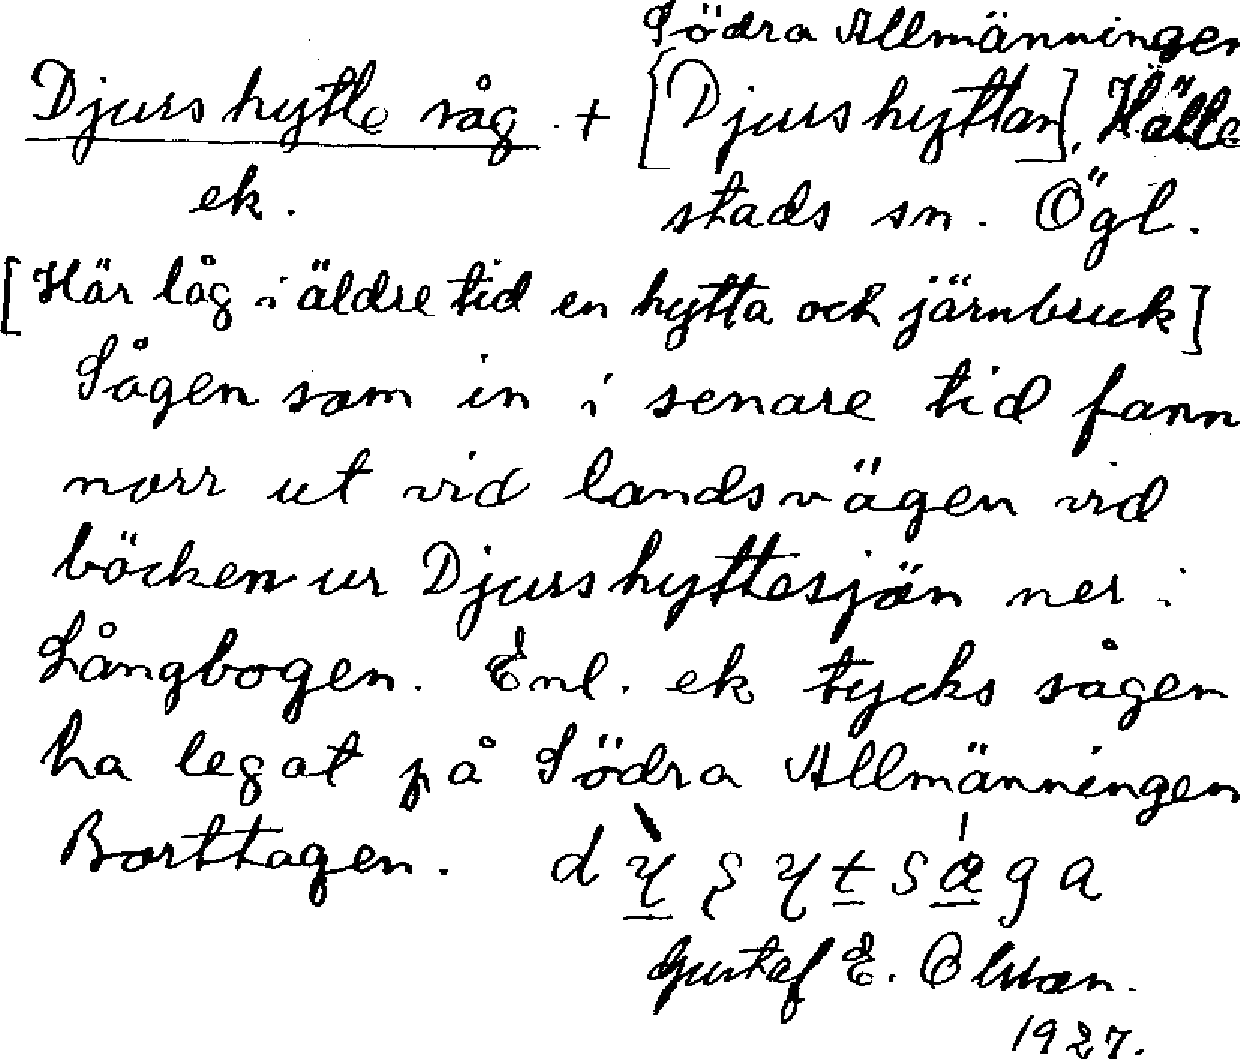 Södra Allmänningen
Djurshytte såg + [Djurshyttan], Hälle
ek. stads sn. Ögl.
[Här låg i äldre tid en hytta och järnbruk]
Sågen som in i senare tid fann
norr ut vid landsvägen vid
bäcken ur Djurshyttesjön ner i
Långbogen. Enl. ek tycks sågen
ha legat på Södra Allmänningen
Borttagen.
Gustaf E. Olsson.
1927.